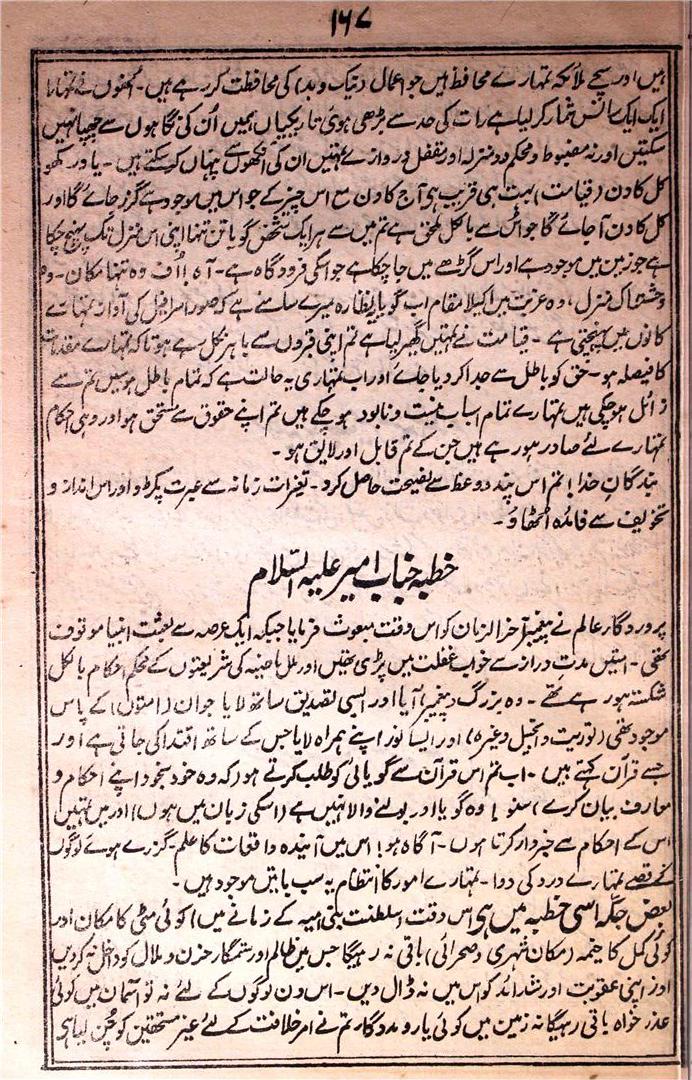 ۱۶۷
ہیں اور سچے ملائکہ تمہارے محافظ ہیں جو اعمال (نیک و بد) کی محافظت کر رہے ہیں۔ انھوں نے تمہارا
ایک ایک سانس شمار کر لیا ہے رات کی حد سے بڑھی ہوئی تاریکیاں ہمیں اُن کی نگاہوں سے چھپا نہیں
سکتیں اور نہ مضبوط و محکم دو منزلہ اور مقفل دروازے تمہیں ان کی آنکھوں سے پنہاں کر سکتے ہیں۔ یاد رکھو
کل کا دن (قیامت) بہت ہی قریب ہی آج کا دن مع اس چیز کے جو اس میں موجود ہے گزر جائے گا اور
کل کا دن آ جائے گا جو اُس سے بالکل ملحق ہے تم میں سے ہر ایک شخص گویا تن تنہا اپنی اس منزل تک پہنچ چکا
ہے جو زمین میں موجود ہے اور اس گڑھے میں جا چکا ہے جو اسکی فرودگاہ ہے۔ آہ! اُف وہ تنہا مکان۔ وہ
وحشتناک منزل، وہ غربت میں اکیلا مقام اب گویا یہ نظارہ میرے سامنے ہے کہ صور اسرافیل کی آواز تمہارے
کانوں میں پہنچتی ہے۔ قیامت نے تمہیں گھیر لیا ہے تم اپنی قبروں سے باہر نکل رہے ہو تاکہ تمہارے مقدمات
کا فیصلہ ہو۔ حق کو باطل سے جدا کر دیا جائے اور اب تمہاری یہ حالت ہے کہ تمام باطل ہوسیں تم سے
زائل ہو چکی ہیں تمہارے تمام اسباب نیست و نابود ہو چکے ہیں تم اپنے حقوق سے مستحق ہو اور وہی احکام
تمہارے لئے صادر ہو رہے ہیں جن کے تم قابل اور لایق ہو۔
بندگانِ خدا! تم اس پند و وعظ سے نصیحت حاصل کرو۔ تغیرات زمانہ سے عبرت پکڑو اور اس انداز و
تخویف سے فائدہ اٹھاؤ۔
خطبہ جناب امیر علیہ السّلام
پروردگار عالم نے پیغمبر آخر الزمان کو اس وقت مبعوث فرمایا جبکہ ایک عرصہ سے بعثت انبیا موقوف
تھی۔ امتیں مدت دراز سے خواب غفلت میں پڑی تھیں اور ملل ماضیہ کی شریعتوں کے محکم احکام بالکل
شکستہ ہو رہے تھے۔ وہ بزرگ (پیغمبر) آیا اور ایسی تصدیق ساتھ لایا جو ان (امتوں) کے پاس
موجود تھی (توریت و انجیل وغیرہ) اور ایسا نور اپنے ہمراہ لایا جس کے ساتھ اقتدا کی جاتی ہے اور
جسے قرآن کہتے ہیں۔ اب تم اس قرآن سے گویائی کو طلب کرتے ہو (کہ وہ خود بخود اپنے احکام و
معارف بیان کرے) سنو! وہ گویا اور بولنے والا نہیں ہے (اسکی زبان میں ہوں) اور میں تمہیں
اس کے احکام سے خبردار کرتا ہوں۔ آگاہ ہو! اس میں آیندہ واقعات کا علم۔ گزرے ہوے لوگوں
کے قصے تمہارے درد کی دوا۔ تمہارے امور کا انتظام یہ سب باتیں موجود ہیں۔
بعض جگہ اسی خطبہ میں ہی اس وقت (سلطنت بنی امیہ کے زمانے میں) کوئی مٹی کا مکان اور
کوئی کمل کا خیمہ (مکان شہری و صحرائی) باقی نہ رہیگا جس میں ظالم اور ستمگار حزن و ملال کو داخل نہ کردیں
اور اپنی عقوبت اور شدائد کو اس میں نہ ڈال دیں۔ اس دن لوگوں کے لئے نہ تو آسمان میں کوئی
عذر خواہ باقی رہیگا نہ زمین میں کوئی یار و مددگار تم نے امر خلافت کے لئے غیر مستحقین کو چُن لیا ہی